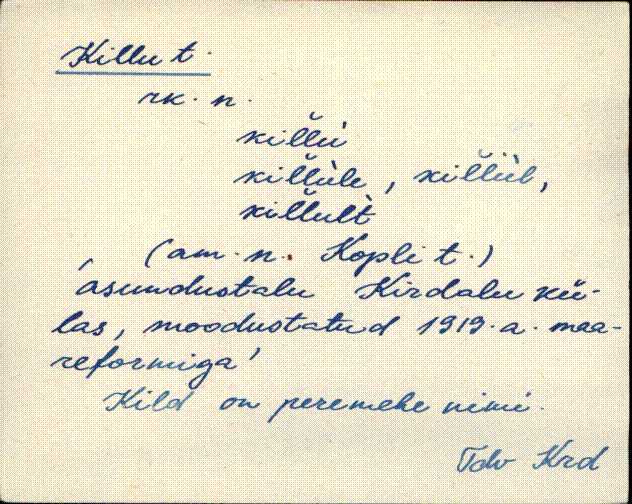 Killu t.
rk. n.
kil̆l̆ù
kil̆l̆ùle, kil̆l̆ùl,
kil̆l̆ult̀
(am. n. Kopli t.)
'asundustalu Kirdalu kü-
las, moodustatud 1919. a. maa-
reformiga'
Kild on peremehe nimi.
Tdv Krd